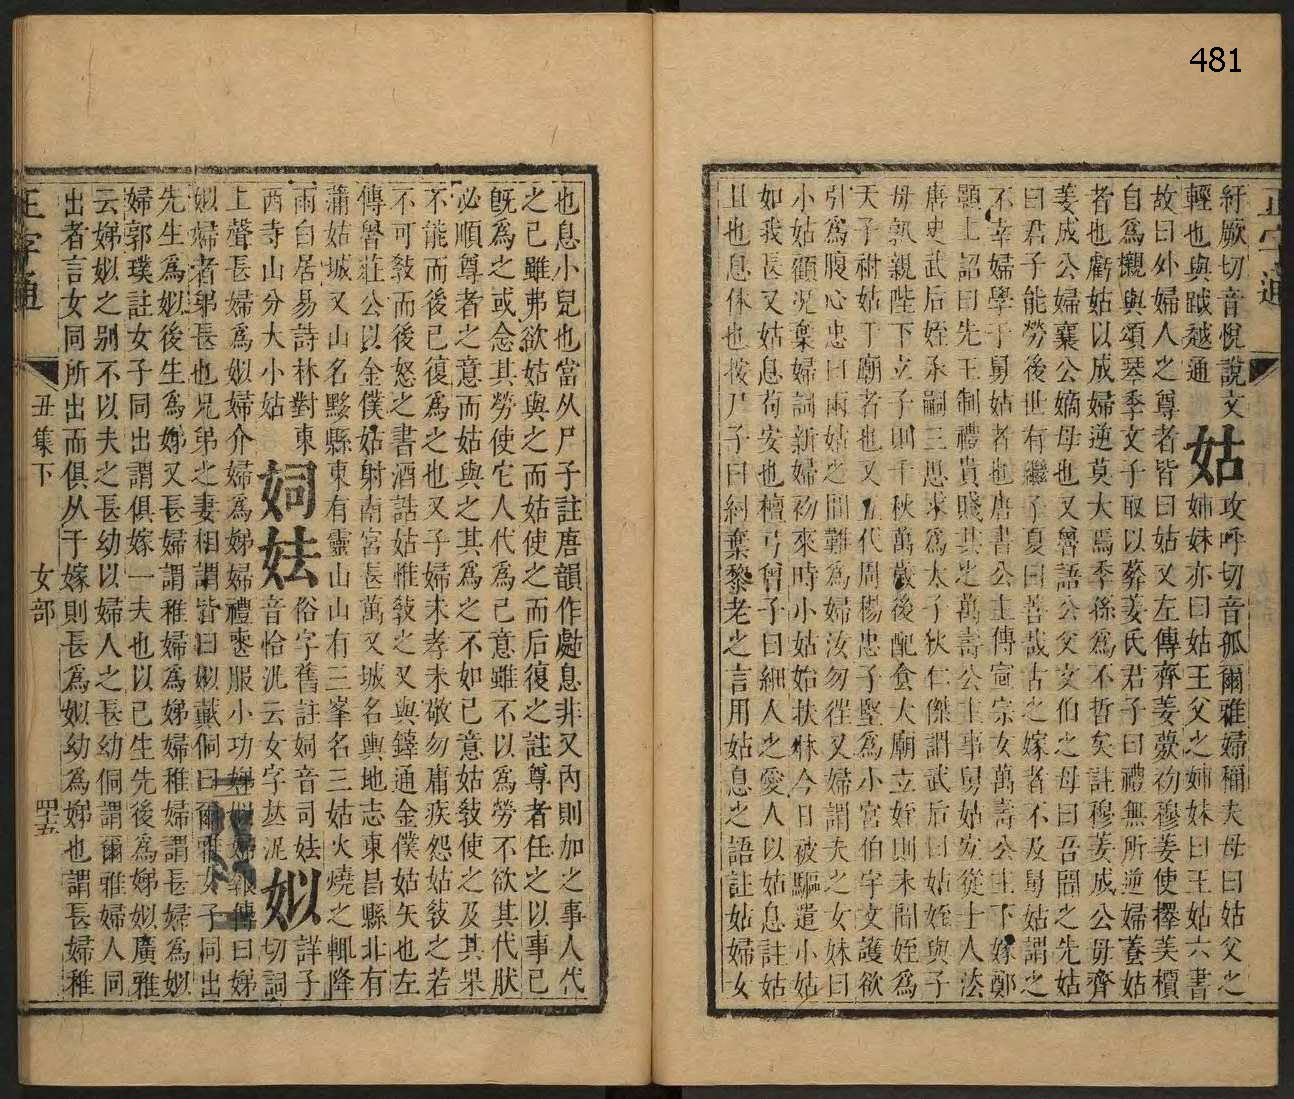 481
正字通
紆厥切音悅說文
輕也與跋越通
姑
攻呼切音孤爾雅婦稱夫母曰姑父之
姉妹亦曰姑王父之姉妹曰王姑六書
故曰外婦人之尊者皆曰姑又左傳齊姜薨初穆姜使擇美檟
自爲櫬與頌琴季文子取以葬姜氏君子曰禮無所逆婦養姑
者也虧姑以成婦逆莫大焉季孫爲不哲矣註穆姜成公毋齊
姜成公婦襄公嫡母也又魯語公父文伯之母曰吾聞之先姑
曰君子能勞後世有繼子夏曰善哉古之嫁者不及舅姑謂之
不幸婦學于舅姑者也唐書公主傳宣宗女萬壽公主下嫁鄭
顥上詔曰先王制禮貴賤共之萬壽公主事舅姑宐從士人法
唐史武后姪承嗣三思求爲太子狄仁傑謂武后曰姑姪與子
母孰親陛下立子則千秋萬歲後配食太廟立姪則未聞姪爲
天子祔姑于廟者也又五代周楊忠子堅爲小宮伯宇文護欲
引爲腹心忠曰兩姑之間難爲婦汝勿徃又婦謂夫之女妹曰
小姑顧況棄婦詞新婦初來時小姑始扶牀今日被驅遣小姑
如我長又姑息苟安也檀弓曾子曰細人之愛人以姑息註姑
且也息休也按尸子曰紂棄黎老之言用姑息之語註姑婦女
也息小兒也當从尸子註唐韻作㽽息非又內則加之事人代
之己雖弗欲姑與之而姑使之而后復之註尊者任之以事已
旣爲之或念其勞使它人代爲己意雖不以爲勞不欲其代肰
必順尊者之意而姑與之其爲之不如己意姑敎使之及其果
不能而後己復爲之也又子婦未孝未敬勿庸疾怨姑敎之若
不可敎而後怒之書酒誥姑惟敎之又與鐸通金僕姑矢也左
傳魯莊公以金僕姑射南宮長萬又城名輿地志東昌縣北有
蒲姑城又山名黟縣東有靈山山有三峯名三姑火燒之輒降
雨白居易詩林對東
西寺山分大小姑
妸
㚫
俗字舊註妸音司㚫
音恰汎云女字𠀤泥
姒
詳子
切詞
上聲長婦爲姒婦介婦爲娣婦禮喪服小功娣姒婦報傳曰娣
姒婦者弟長也兄弟之妻相謂皆曰姒戴侗曰爾雅女子同出
先生爲姒後生爲娣又長婦謂稚婦爲娣婦稚婦謂長婦爲姒
婦郭璞註女子同出謂俱嫁一夫也以己生先後爲娣姒廣雅
云娣姒之别不以夫之長幼以婦人之長幼侗謂爾雅婦人同
出者言女同所出而俱从于嫁則長爲姒幼爲娣也謂長婦稚
正字通
丑集下
女部
四十五